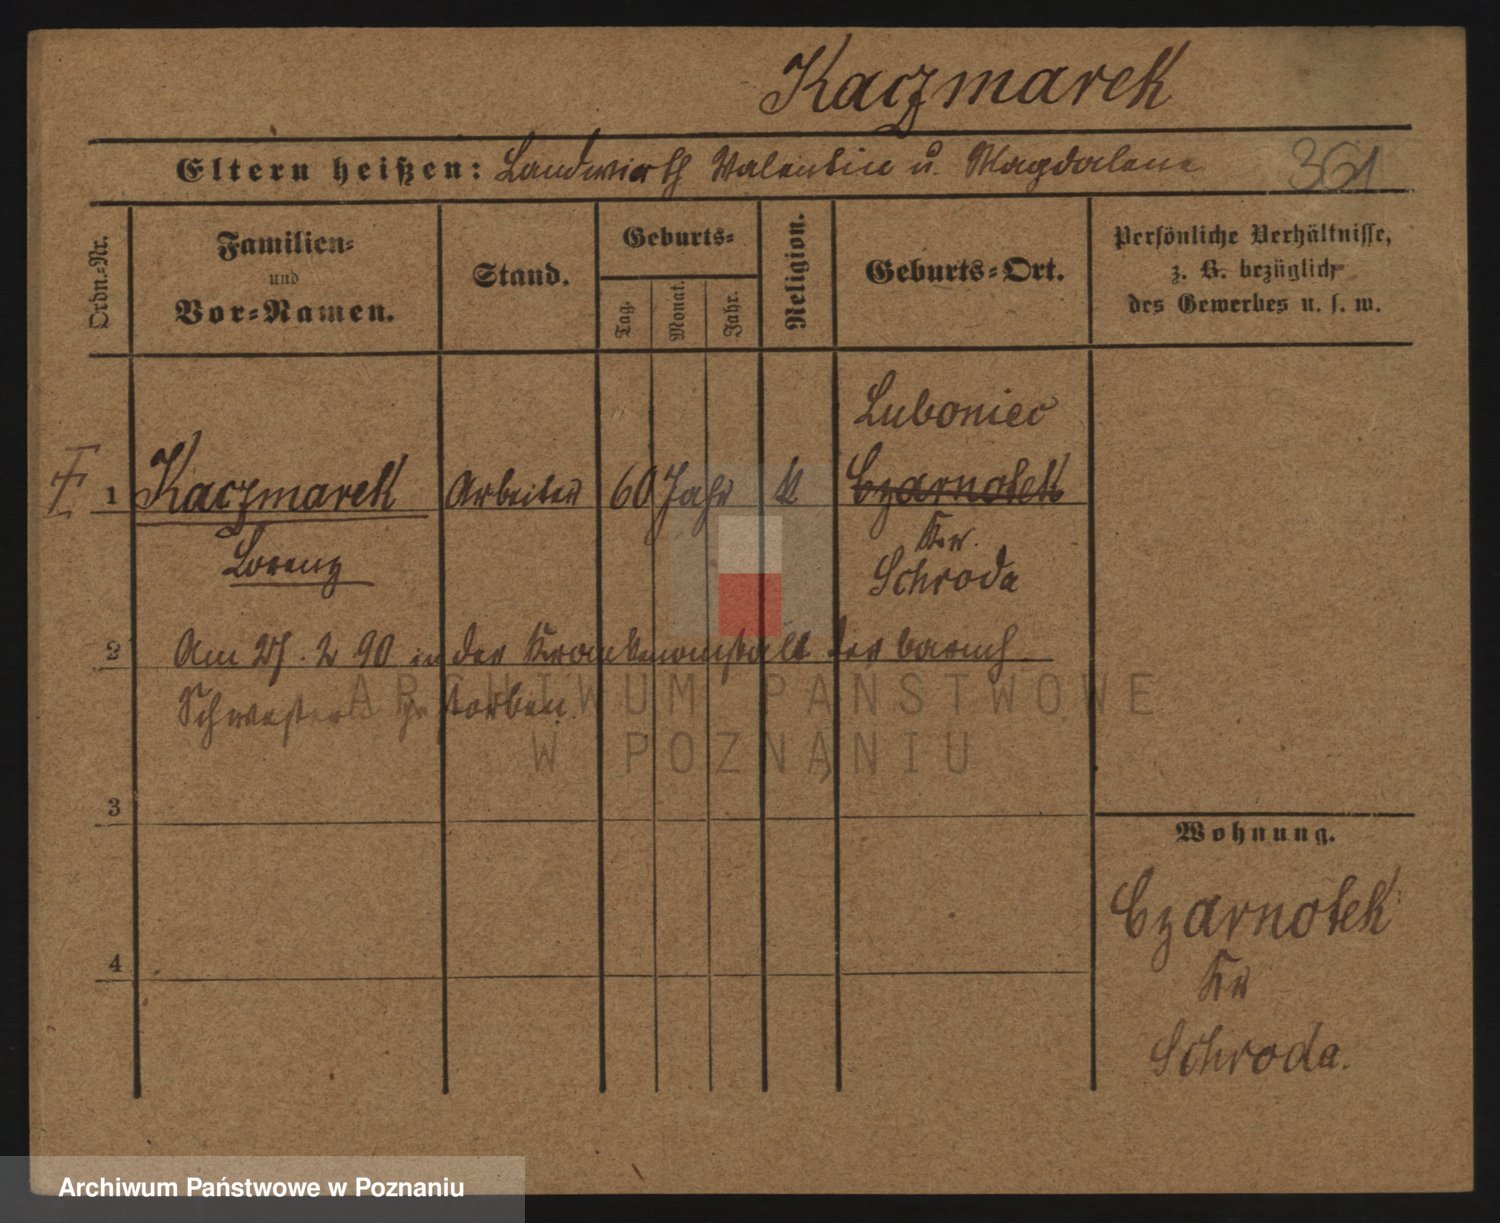 Kaczmarek
Eltern heißen: Landwirth Valentin u. Magdalene 361
Ordn.-Nr.
Familien- und Vor-Namen.
Stand.
Geburts-
Tag. Monat. Jahr.
Religion.
Geburts-Ort.
Persönliche Verhältnisse,
z. B. bezüglich
des Gewerbes u. s. w.
Luboniec
1 Kaczmarek Arbeiter 60 Jahr k Czarnotek
Kr.
Lorenz Schroda
2 Am 27. 2 90 in der Krankenanstalt der barmh
Schwestern gestorben.
3
4
Wohnung.
Czarnotek
Kr
Schroda.
ARCHIWUM PAŃSTWOWE
W POZNANIU
Archiwum Państwowe w Poznaniu